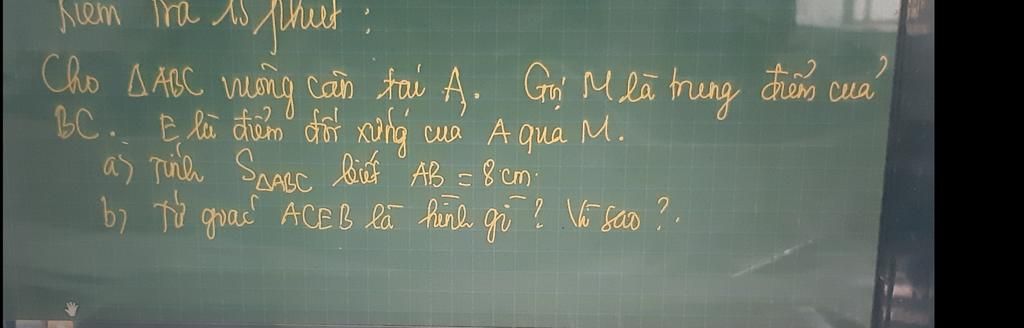 Kiểm tra 15 phút :
Cho ΔABC vuông cân tại A. Gọi M là trung điểm của
BC. E là điểm đối xứng của A qua M.
a) Tính SΔABC biết AB = 8cm.
b) Tứ giác ACEB là hình gì ? Vì sao ?.